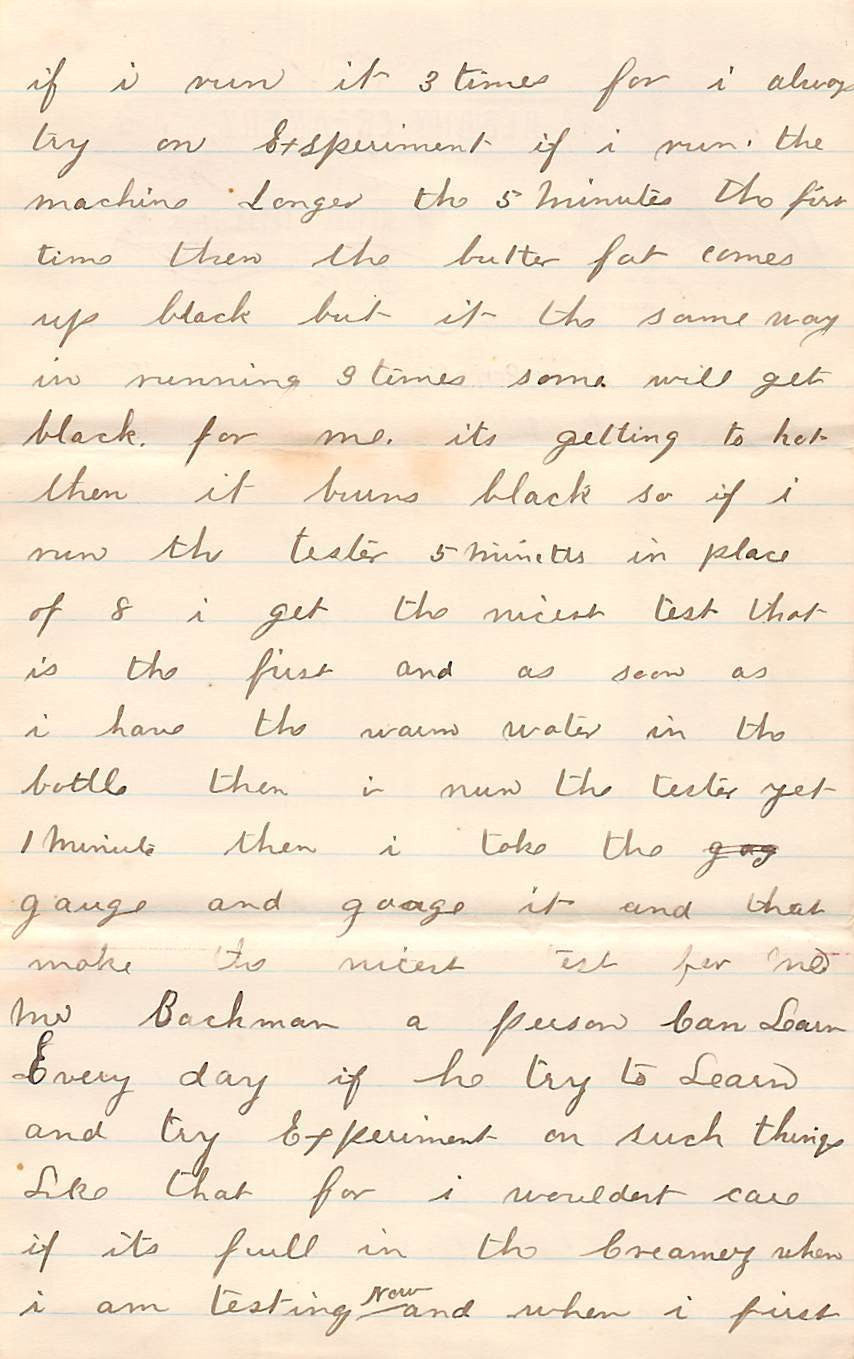 if i run it 3 times for i always
try on Exsperiment if i run the
machine Longer the 5 Minutes the first
time then the butter fat comes
up black but it the same way
in running 3 times some will get
black. for me. its getting to hot
then it burns black so if i
run the tester 5 Minutes in place
of 8 i get the nicest test that
is the first and as soon as
i have the warm water in the
bottle then i run the tester yet
1 Minute then i take the gag
gauge and gauge it and that
make the nicest test for me
Mr Backman a person Can Learn
Every day if he try to Learn
and try Experiment on such things
Like that for i wouldent care
if its full in the Creamery when
i am testing Now and when i first